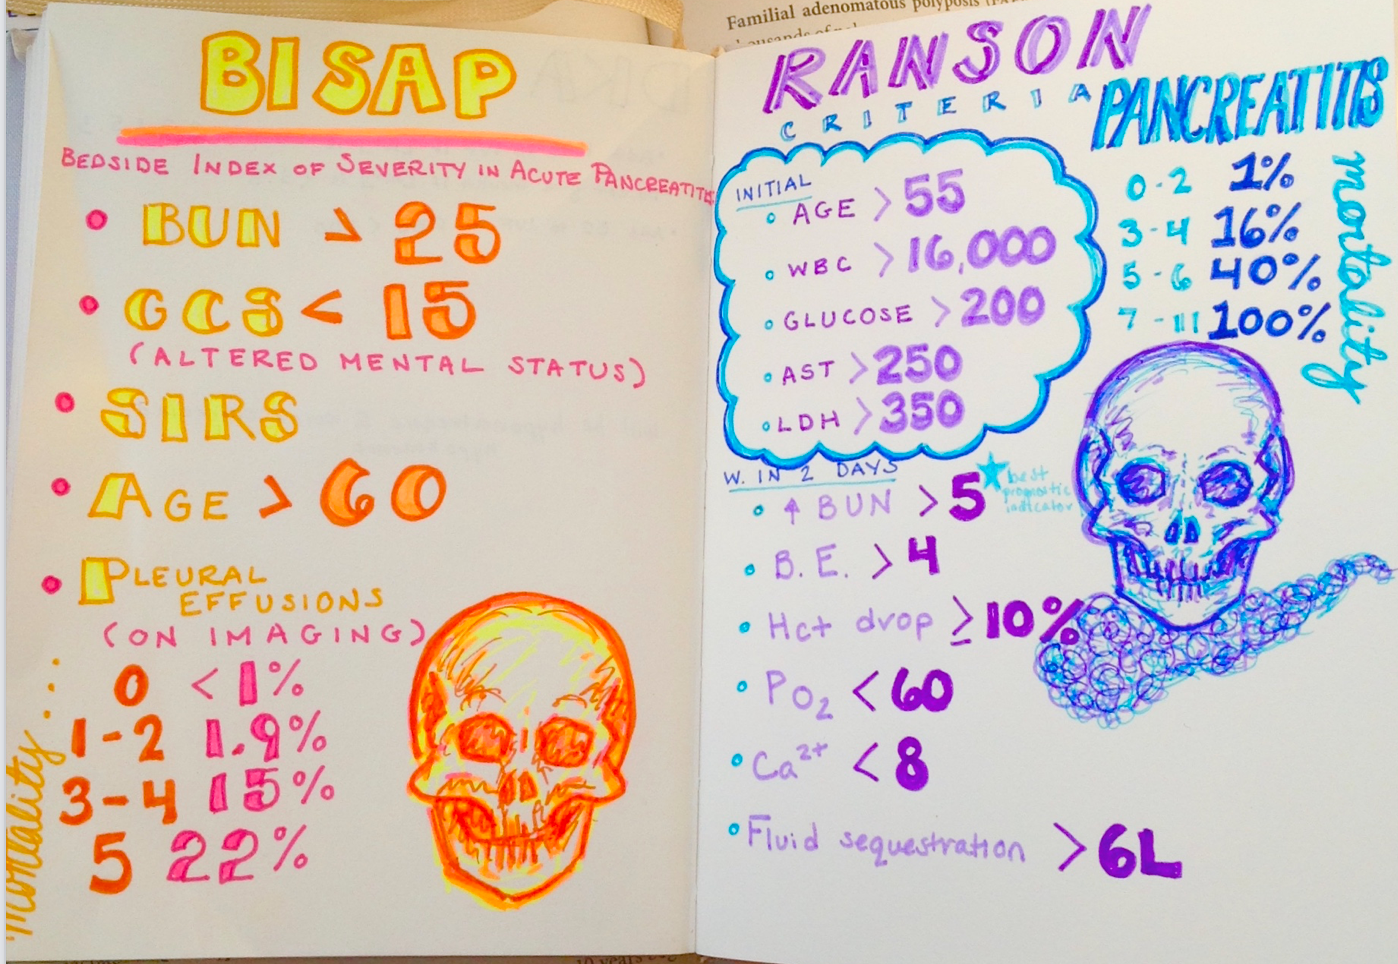 Familial adenomatous polyposis
BISAP
BEDSIDE INDEX OF SEVERITY IN ACUTE PANCREATITIS
BUN > 25
GCS < 15
(ALTERED MENTAL STATUS)
SIRS
AGE > 60
PLEURAL
EFFUSIONS
(ON IMAGING)
mortality...
0 <1%
1-2 1.9%
3-4 15%
5 22%
RANSON
CRITERIA
PANCREATITIS
INITIAL
AGE > 55
WBC > 16,000
GLUCOSE > 200
AST > 250
LDH > 350
0-2 1%
3-4 16%
5-6 40%
7-11 100%
mortality
W. IN 2 DAYS
↑ BUN > 5 ★ best
prognostic
indicator
B.E. > 4
Hct drop ≥ 10%
PO₂ < 60
Ca²⁺ < 8
Fluid sequestration > 6L